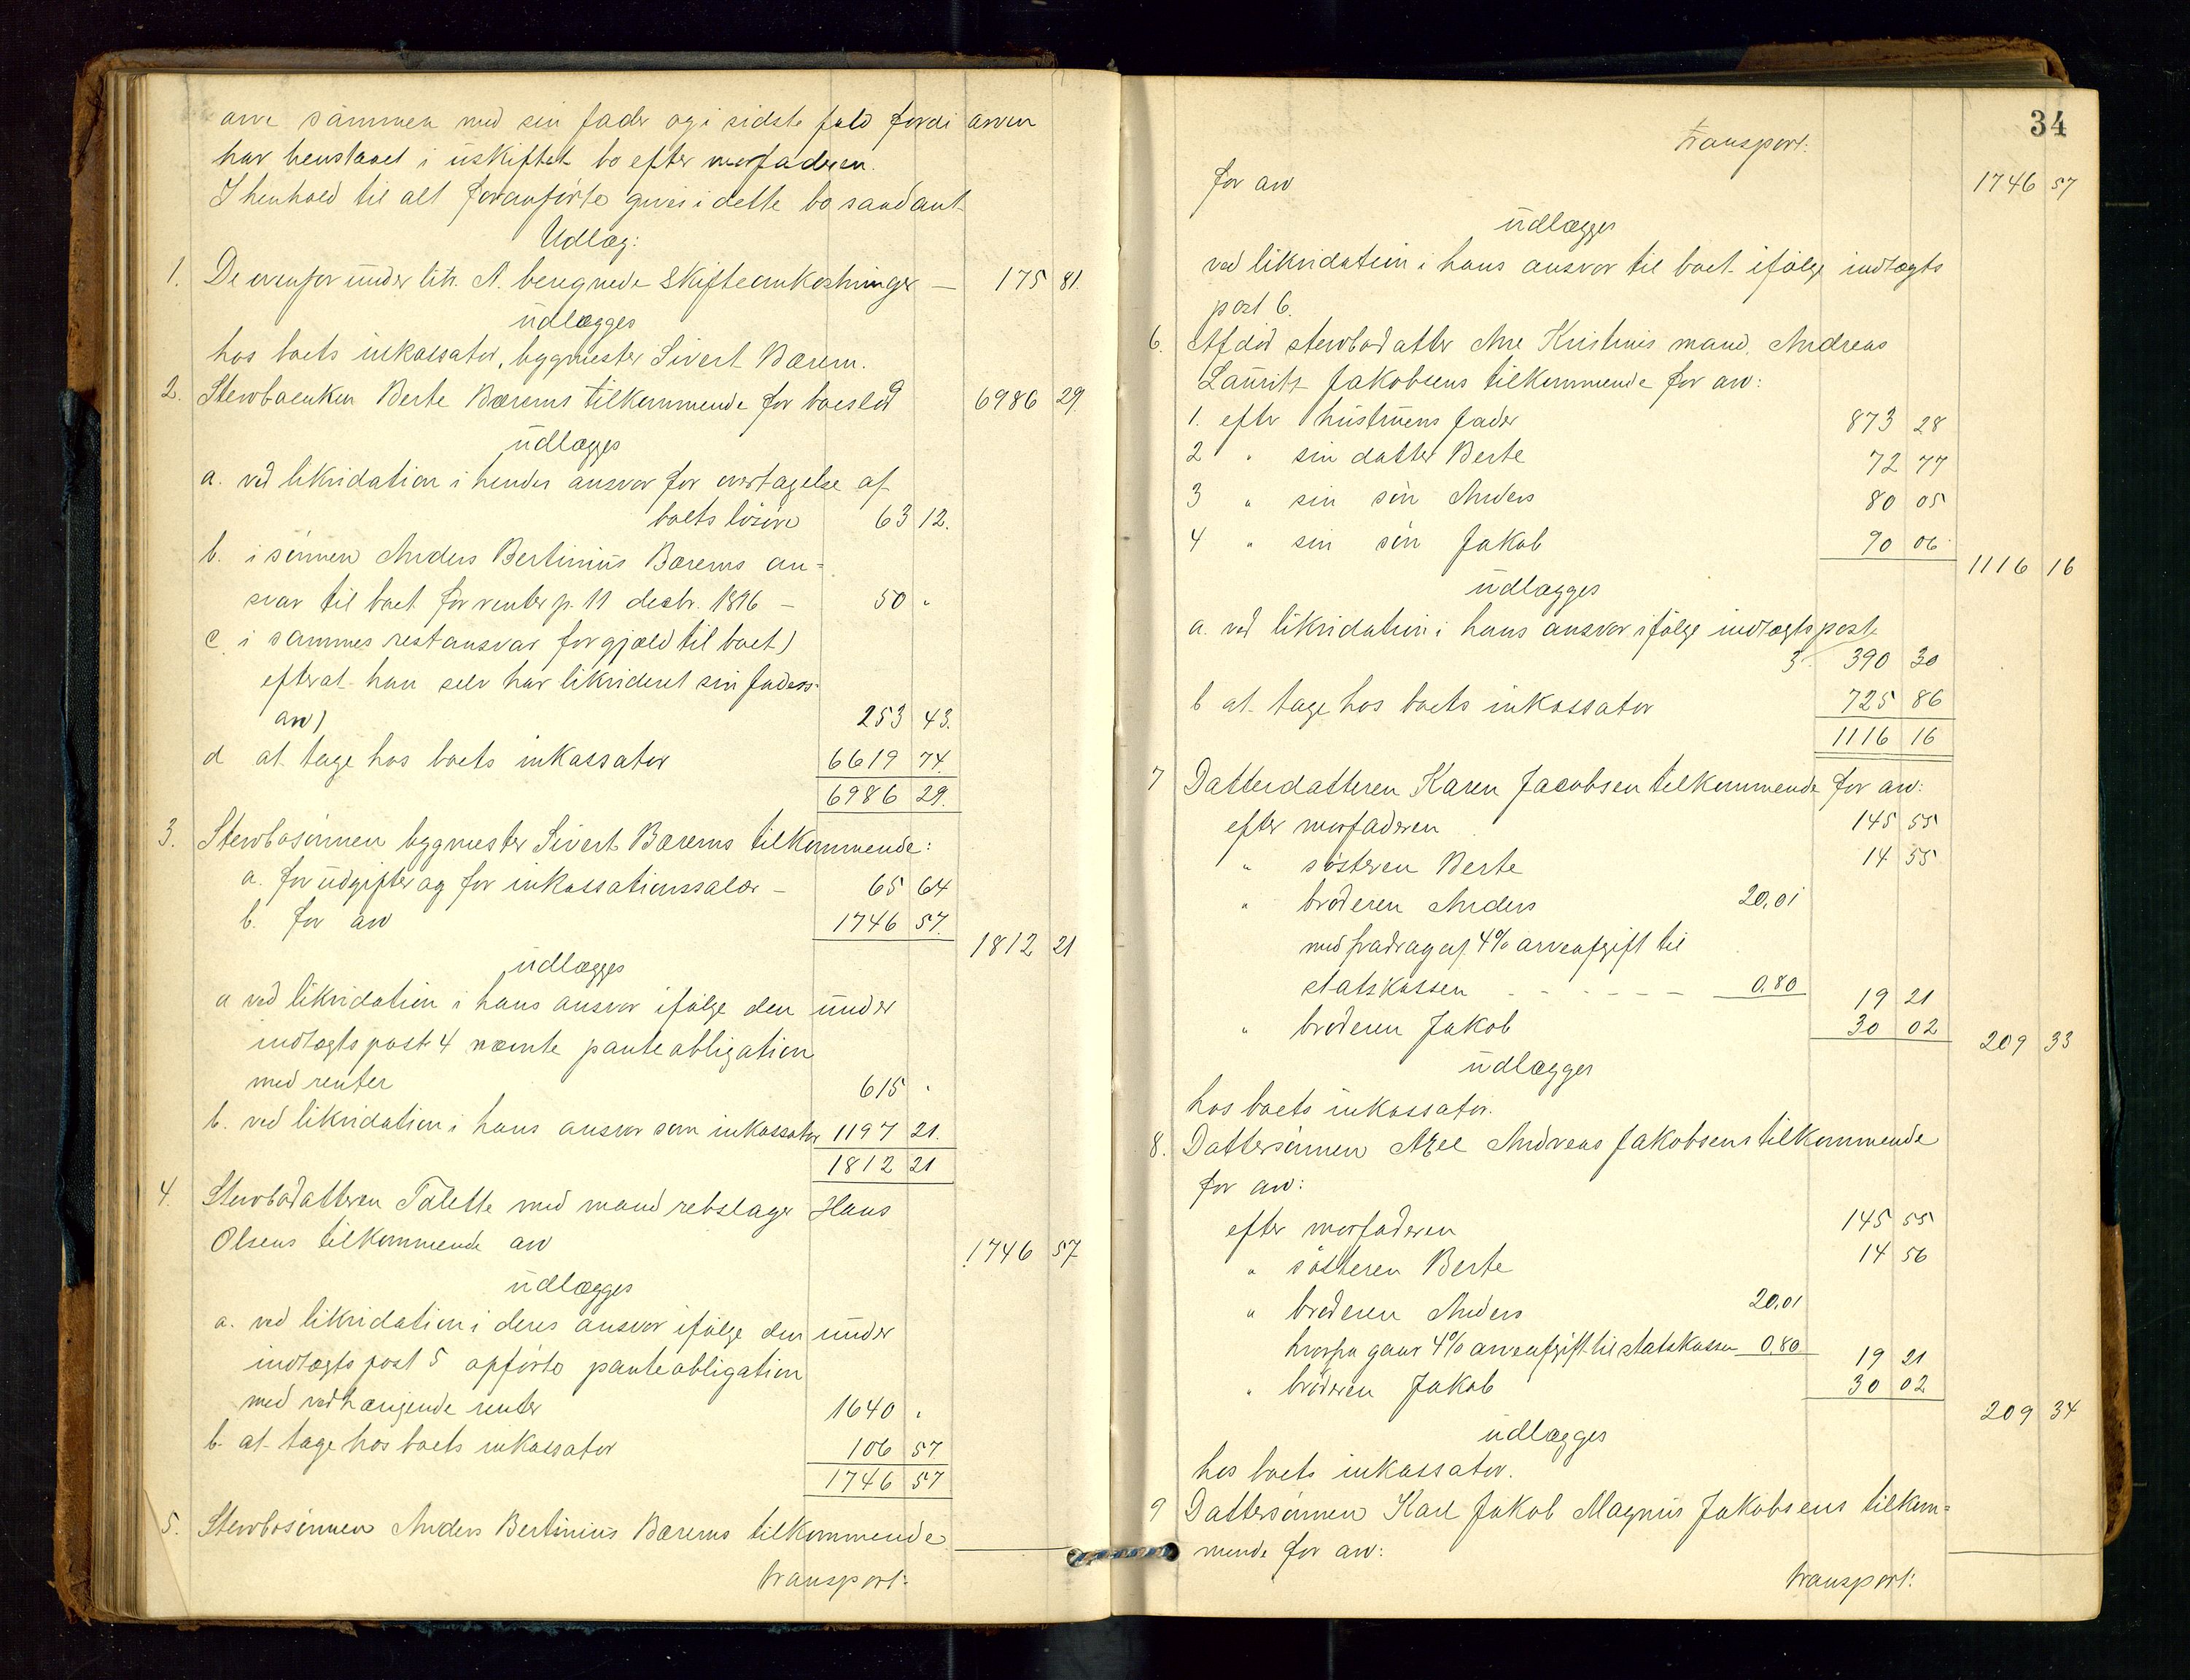 arve sammen med sin fader og i sidste fald fordi arven
har henstaaet i uskiftet bo efter morfaderen.
I henhold til alt foranførte gives i dette bo saadant
Udlæg:
1. De ovenfor under litr. A. beregnede skifteomkostninger — 175 81.
udlægges
hos boets inkassator, bygmester Sivert Bærem.
2. Stervboenken Berte Bærems tilkommende for boeslod 6986 29.
udlægges
a. ved likvidation i hendes ansvar for overtagelse af
boets løsøre 63 12.
b. i sønnen Anders Bertinius Bærems an=
svar til boet for renter p. 11 decbr. 1896 — 50 "
c. i sammes restansvar for gjæld til boet)
efter at han selv har likvideret sin faders-
arv) 253 43.
d at tage hos boets inkassator 6619 74.
6986 29.
3. Stervbosønnen bygmester Sivert Bærems tilkommende:
a. for udgifter og for inkassationssalær — 65 64
b. for arv 1746 57.
1812 21
udlægges
a ved likvidation i hans ansvar ifølge den under
indtægtspost 4 nævnte panteobligation
med renter 615 "
b. ved likvidation i hans ansvar som inkassator 1197 21.
1812 21
4. Stervbodatteren Talette med mand rebslager Hans
Olsens tilkommende arv 1746 57
udlægges
a. ved likvidation i deres ansvar ifølge den under
indtægtspost 5 opførte panteobligation
med vedhængende renter 1640 "
b. at tage hos boets inkassator 106 57
1746 57
5. Stervbosønnen Anders Bertinius Bærems tilkommende
transport:
34
transport:
for arv 1746 57
udlægges
ved likvidation i hans ansvar til boet ifølge indtægts
post 6.
6. Afdød stervbodatter Ane Kristines mand, Andreas
Lauritz Jakobsens tilkommende for arv:
1. efter hustruens fader 873 28
2 " sin datter Berte 72 77
3 " sin søn Anders 80 05
4 " sin søn Jakob 90 06
1116 16
udlægges
a. ved likvidation i hans ansvar ifølge indtægtspost
3. 390 30
b at tage hos boets inkassator 725 86
1116 16
7 Datterdatteren Karen Jacobsen tilkommende for arv:
efter morfaderen 145 55
" søsteren Berte 14 55
" broderen Anders 20,01
med fradrag af 4% arveafgift til
statskassen - - - - - - 0.80 19 21
" broderen Jakob 30 02
209 33
udlægges
hos boets inkassator.
8. Dattersønnen Axel Andreas Jakobsens tilkommende
for arv:
efter morfaderen 145 55
" søsteren Berte 14 56
" broderen Anders 20,01
hvorfra gaar 4% arveafgift til statskassen 0,80 19 21
" broderen Jakob 30 02
209 34
udlægges
hos boets inkassator.
9 Dattersønnen Karl Jakob Magnus Jakobsens tilkom=
mende for arv:
transport: